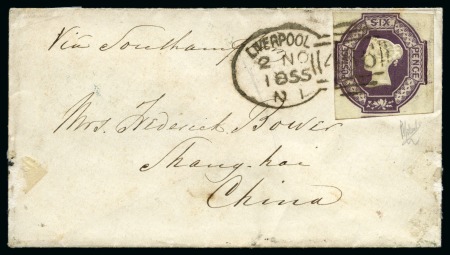 Via Southampton
LIVERPOOL
2 NO
1855
N 1
SIX
PENCE
Mrs. Frederick Bower
Shang-hai
China